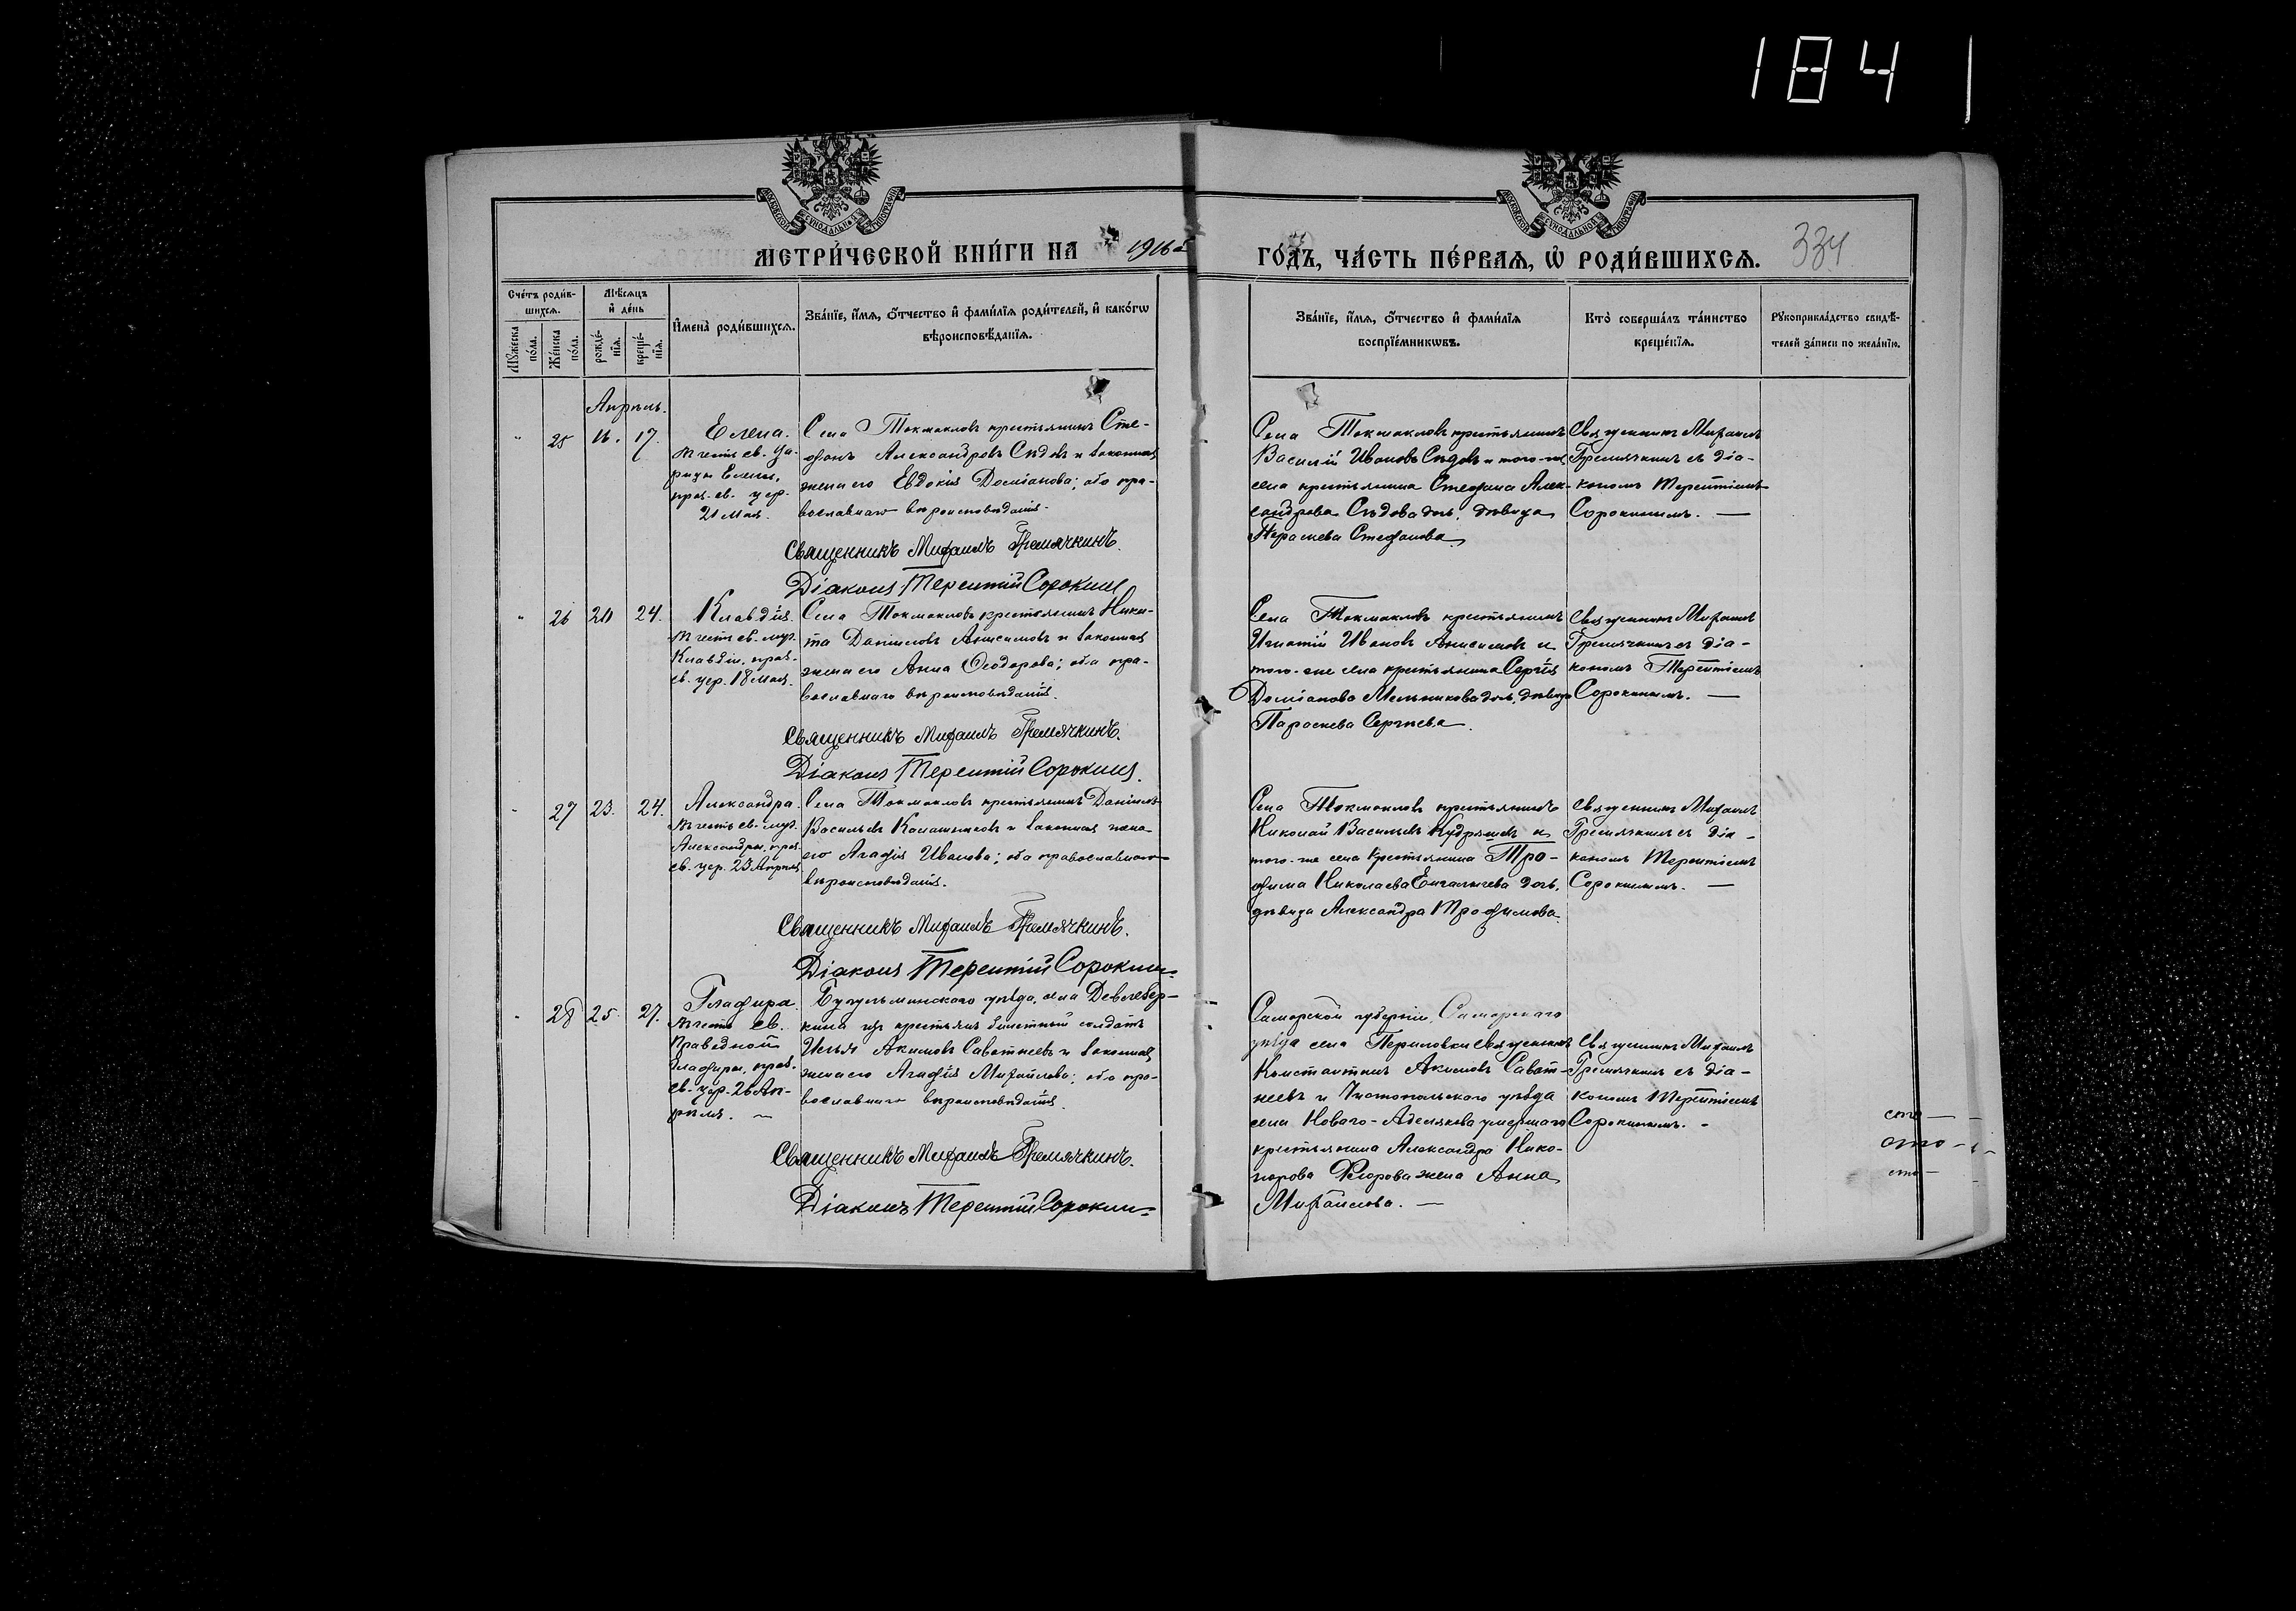 184
МОСКОВСКОЙ СѴНОДАЛЬНОЙ ТИПОГРАФІИ
МОСКОВСКОЙ СѴНОДАЛЬНОЙ ТИПОГРАФІИ
МЕТРИ́ЧЕСКОЙ КНИ́ГИ НА 1916 ГО́ДЪ, ЧА́СТЬ ПЕ́РВАЯ, Ѡ РОДИ́ВШИХСЯ. 334
Счетъ роди́в-
шихся.
Мѣ́сяцъ
и де́нь
Мꙋ́жеска
по́ла.
Же́нска
по́ла.
рожде́-
нїя.
креще́-
нїя.
Имена̀ роди́вшихся.
Зва́нїе, и́мя, ѻ́тчество и фами́лїя роди́телей, и како́гѡ
вѣроисповѣ́данїя.
Зва́нїе, и́мя, ѻ́тчество и фами́лїя
воспрїе́мникѡвъ.
Кто̀ соверша́лъ та́инство
креще́нїя.
Рꙋкоприкла́дство свидѣ́-
телей за́писи по жела́нїю.
Апрѣль.
" 25 16. 17.
Елена.
въ честь св. Ца-
рицы Елены,
праз. св. цер.
21 мая.
Села Токмакловъ крестьянинъ Сте-
фанъ Александровъ Сѣдовъ и законная
жена его Евдокія Доміанова; оба пра-
вославнаго вѣроисповѣданія.
Священникъ Михаилъ Гремячкинъ.
Діаконъ Терентій Сорокинъ
Села Токмакловъ крестьянинъ
Василій Ивановъ Сѣдовъ и того-же
села крестьянина Стефана Алек-
сандрова Сѣдова дочь, дѣвица
Параскева Стефанова
Священникъ Михаилъ
Гремячкинъ съ діа-
кономъ Терентіемъ
Сорокинымъ. —
" 26 20 24.
Клавдія.
въ честь св. муч.
Клавдіи, праз.
св. цер. 18 мая.
Села Токмакловъ крестьянинъ Ники-
та Даніиловъ Анисимовъ и законная
жена его Анна Ѳеодорова; оба пра-
вославнаго вѣроисповѣданія.
Священникъ Михаилъ Гремячкинъ.
Діаконъ Терентій Сорокинъ.
Села Токмакловъ крестьянинъ
Игнатій Ивановъ Анисимовъ и
того-же села крестьянина Сергія
Доміанова Мельникова дочь, дѣвица
Параскева Сергіева.
Священникъ Михаилъ
Гремячкинъ съ діа-
кономъ Терентіемъ
Сорокинымъ. —
" 27 23. 24.
Александра.
въ честь св. муч.
Александры, праз.
св. цер. 23 Апрѣля
Села Токмакловъ крестьянинъ Даніилъ
Васильевъ Калашниковъ и законная жена
его Агафія Иванова; оба православнаго
вѣроисповѣданія.
Священникъ Михаилъ Гремячкинъ.
Діаконъ Терентій Сорокинъ
Села Токмакловъ крестьянинъ
Николай Васильевъ Кудряшевъ и
того-же села крестьянина Тро-
фима Николаева Енгалычева дочь,
дѣвица Александра Трофимова.
Священникъ Михаилъ
Гремячкинъ съ діа-
кономъ Терентіемъ
Сорокинымъ. —
" 28 25 27.
Глафира
въ честь св.
Праведной
Глафиры, праз.
св. цер. 26 Ап-
рѣля. —
Бугульминскаго уѣзда, села Девлезер-
кина изъ крестьянъ билетный солдатъ
Илья Акимовъ Саватнеевъ и законная
жена его Агафія Михайлова; оба пра-
вославнаго вѣроисповѣданія.
Священникъ Михаилъ Гремячкинъ.
Діаконъ Терентій Сорокинъ
Самарской губерніи, Самарскаго
уѣзда села Периловки Священникъ
Константинъ Акимовъ Сават-
неевъ и Чистопольскаго уѣзда
села Новаго-Аделякова умершаго
крестьянина Александра Ника-
норова Флорова жена Анна
Михайлова. —
Священникъ Михаилъ
Гремячкинъ съ діа-
кономъ Терентіемъ
Сорокинымъ.